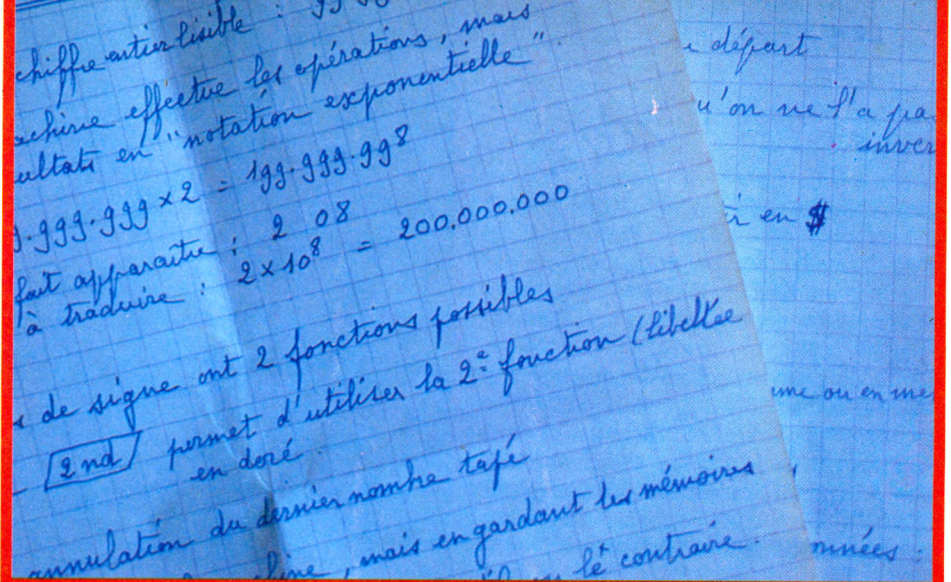 chiffre entier lisible : 99.99
achine effectue les opérations, mais
ultats en "notation exponentielle".
9.999.999 × 2 = 199.999.998
fait apparaître : 2 08
à traduire : 2 × 10⁸ = 200.000.000
de signe ont 2 fonctions possibles
- 2nd permet d'utiliser la 2e fonction (libellée
en doré.
annulation du dernier nombre tapé
chine, mais en gardant les mémoires
le contraire.
départ
u'on ne l'a pa
inver
i en $
ume ou en me
nnées :